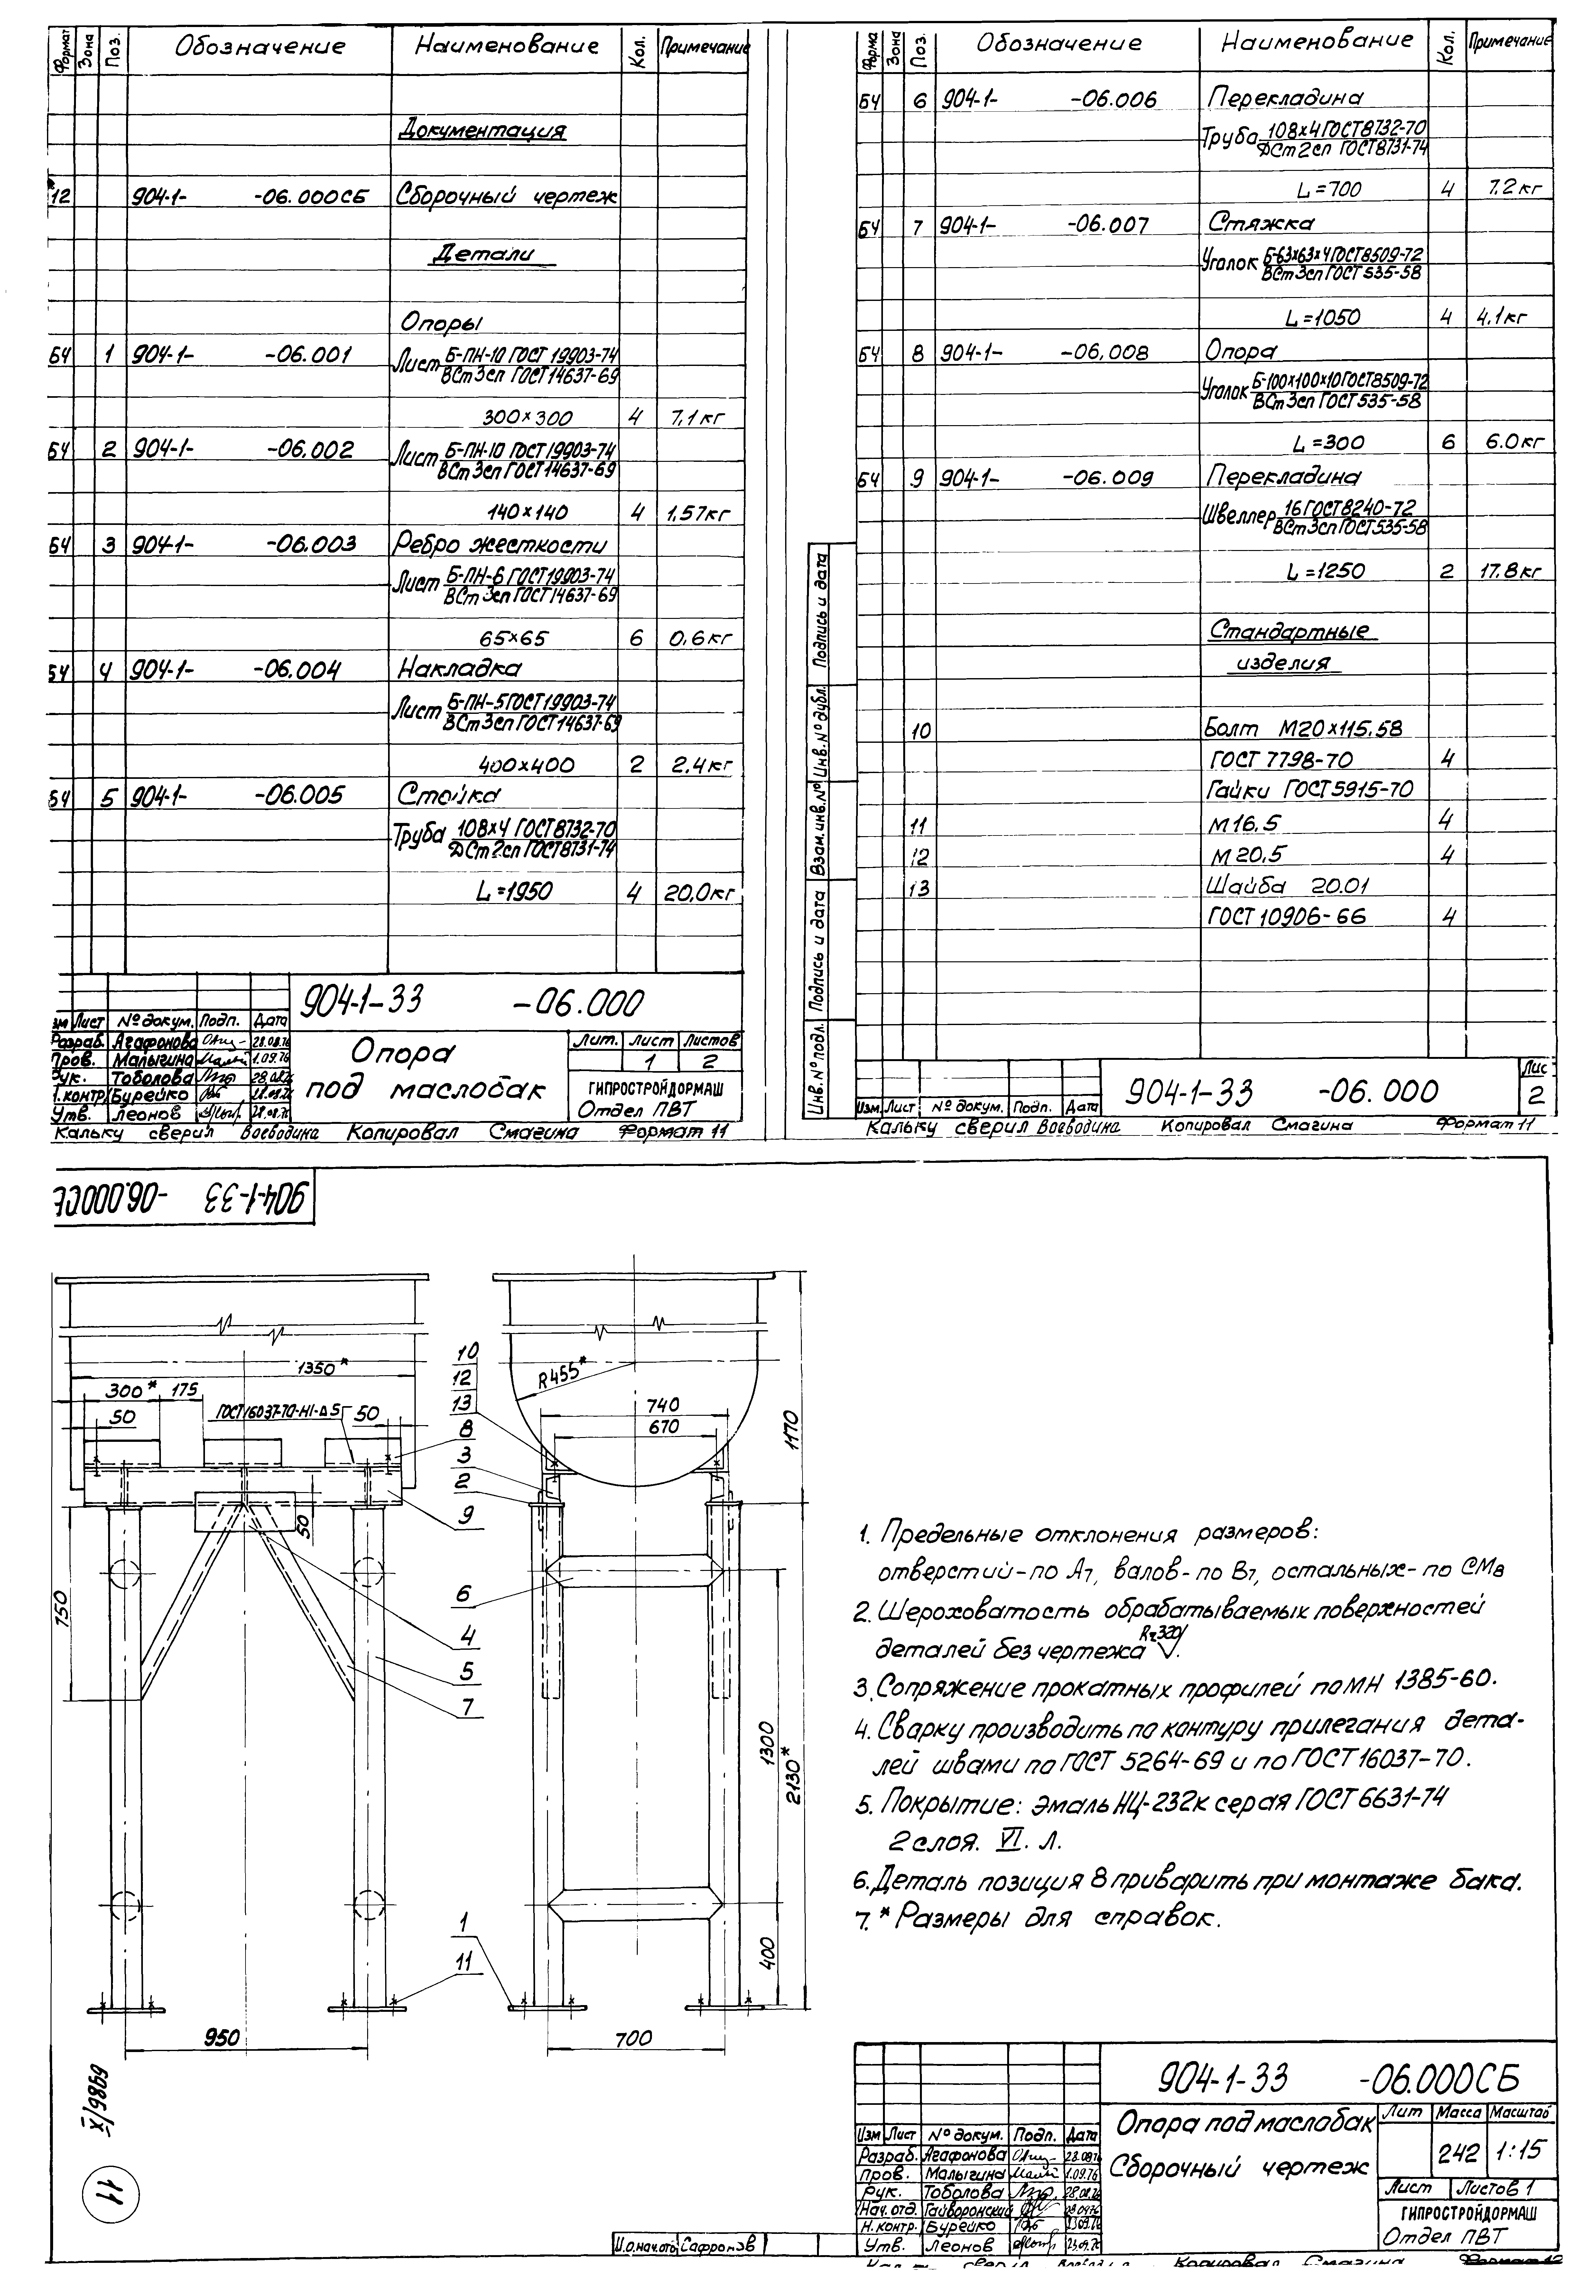 Формат Зона Поз. Обозначение Наименование Кол. Примечание
Документация
12 904-1- -06.000СБ Сборочный чертеж
Детали
Опоры
БЧ 1 904-1- -06.001 Лист Б-ПН-10 ГОСТ 19903-74
ВСт3сп ГОСТ 14637-69
300×300 4 7,1кг
БЧ 2 904-1- -06.002 Лист Б-ПН-10 ГОСТ 19903-74
ВСт3сп ГОСТ 14637-69
140×140 4 1,57кг
БЧ 3 904-1- -06.003 Ребро жесткости
Лист Б-ПН-6 ГОСТ 19903-74
ВСт3сп ГОСТ 14637-69
65×65 6 0,6кг
БЧ 4 904-1- -06.004 Накладка
Лист Б-ПН-5 ГОСТ 19903-74
ВСт3сп ГОСТ 14637-69
400×400 2 2,4кг
БЧ 5 904-1- -06.005 Стойка
Труба 108×4 ГОСТ 8732-70
ДСт2сп ГОСТ 8731-74
L=1950 4 20,0кг
904-1-33 -06.000
зм Лист № докум. Подп. Дата
Разраб. Агафонова 28.08.76
Пров. Малыгина 1.09.76
Рук. Тоболова 28.08.76
Н.контр. Бурейко
Утв. Леонов
Опора
под маслобак
Лит. Лист Листов
1 2
ГИПРОСТРОЙДОРМАШ
Отдел ПВТ
Кальку сверил Воеводина Копировал Смагина Формат 11
Форма Зона Поз. Обозначение Наименование Кол. Примечание
БЧ 6 904-1- -06.006 Перекладина
Труба 108×4 ГОСТ 8732-70
ДСт2сп ГОСТ 8731-74
L=700 4 7.2кг
БЧ 7 904-1- -06.007 Стяжка
Уголок Б-63×63×4 ГОСТ 8509-72
ВСт3сп ГОСТ 535-58
L=1050 4 4,1кг
БЧ 8 904-1- -06.008 Опора
Уголок Б-100×100×10 ГОСТ 8509-72
ВСт3сп ГОСТ 535-58
L=300 6 6.0кг
БЧ 9 904-1- -06.009 Перекладина
Швеллер 16 ГОСТ 8240-72
ВСт3сп ГОСТ 535-58
L=1250 2 17.8кг
Стандартные
изделия
10 Болт М20×115.58
ГОСТ 7798-70 4
Гайки ГОСТ 5915-70
11 М16.5 4
12 М20.5 4
13 Шайба 20.01
ГОСТ 10906-66 4
Инв. № подл. Подпись и дата Взам. инв. № Инв. № дубл. Подпись и дата
904-1-33 -06.000
Изм. Лист № докум. Подп. Дата
Лис
2
Кальку сверил Воеводина Копировал Смагина Формат 11
904-1-33 -06.000СБ
1350*
300* 175
50 ГОСТ 16037-70-Н1-Δ5 50
10
12
13
8
3
2
9
R455*
740
670
1170
50
750
6
4
5
7
1300
2130*
400
1
11
950 700
1. Предельные отклонения размеров:
отверстий - по А7, валов - по В7, остальных - по СМ8
2. Шероховатость обрабатываемых поверхностей
деталей без чертежа Rz320.
3. Сопряжение прокатных профилей по МН 1385-60.
4. Сварку производить по контуру прилегания дета-
лей швами по ГОСТ 5264-69 и по ГОСТ 16037-70.
5. Покрытие: эмаль НЦ-232к серая ГОСТ 6631-74
2 слоя. VI. Л.
6. Деталь позиция 8 приварить при монтаже бака.
7. * Размеры для справок.
X/9869
11
904-1-33 -06.000СБ
Изм Лист № докум. Подп. Дата
Разраб. Агафонова 28.08.76
Пров. Малыгина 1.09.76
Рук. Тоболова 28.08.76
Нач. отд. Гайворонский
Н.контр. Бурейко
Утв. Леонов 23.09.76
Опора под маслобак
Сборочный чертеж
Лит Масса Масштаб
242 1:15
Лист Листов 1
ГИПРОСТРОЙДОРМАШ
Отдел ПВТ
И.о.нач.отд. Сафронов
Копировал Смагина Формат 12